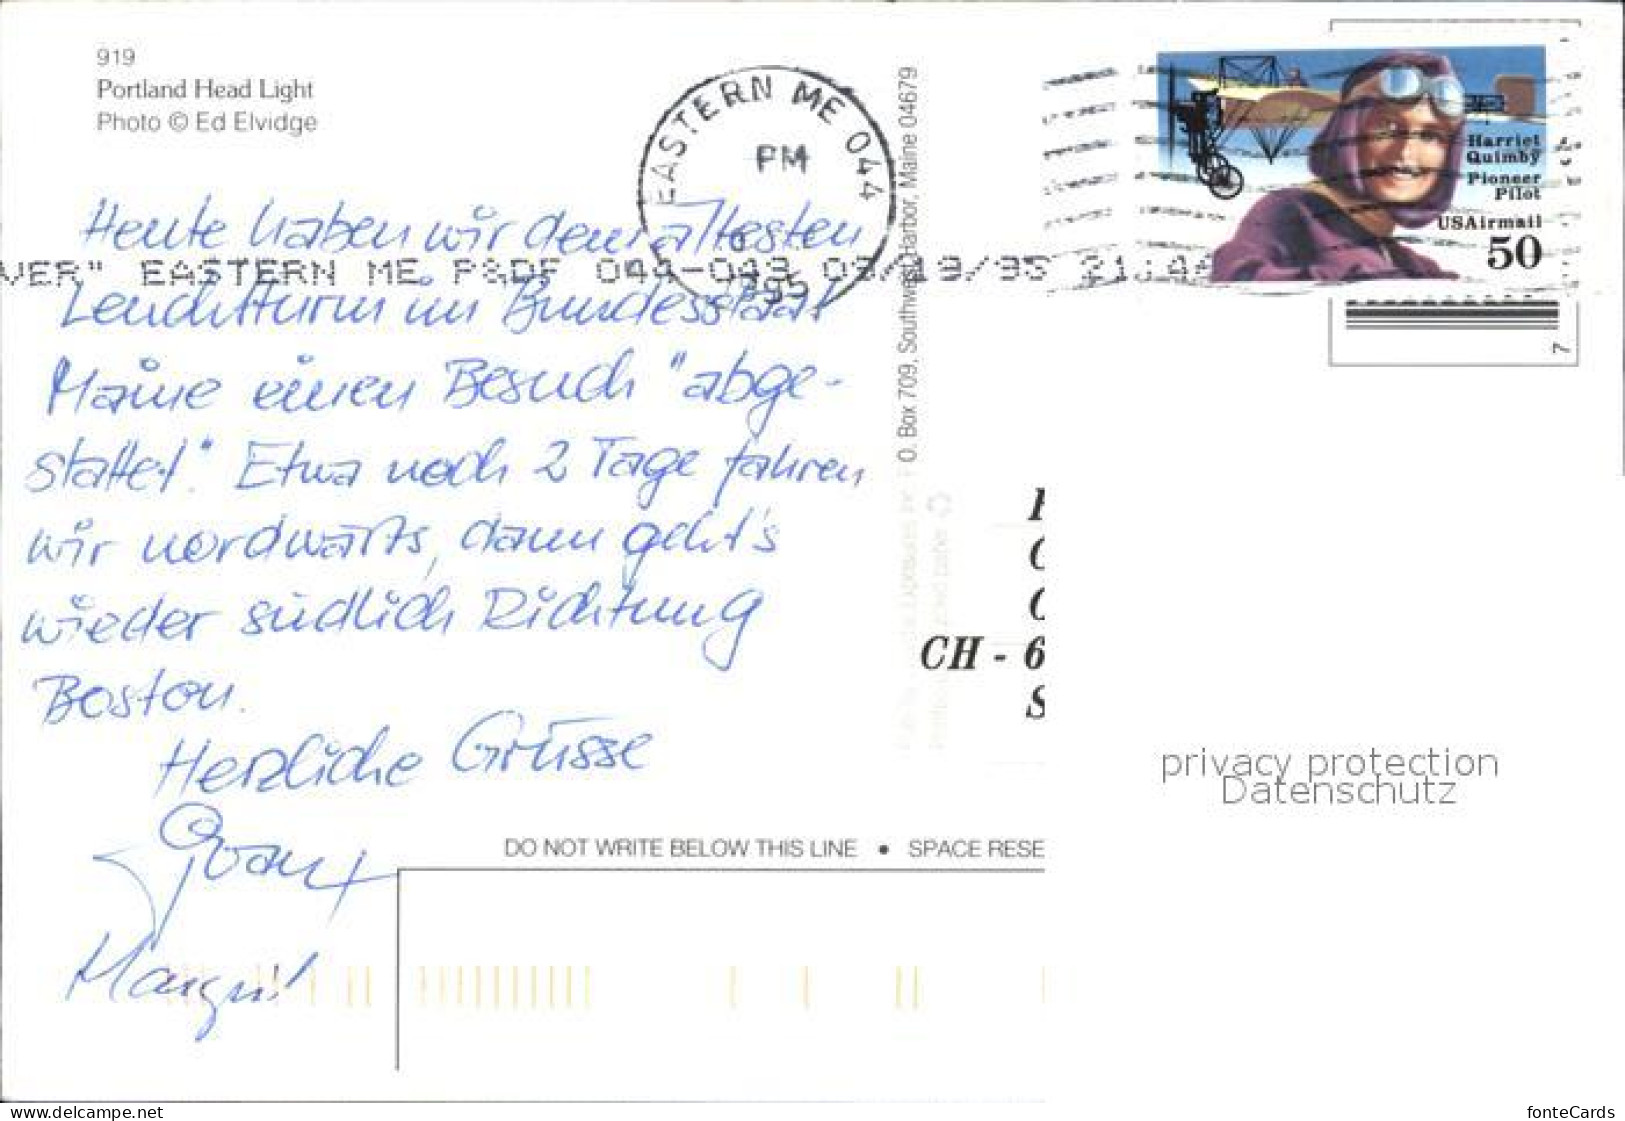 919
Portland Head Light
Photo © Ed Elvidge
EASTERN ME 044
PM
1995
VER" EASTERN ME P&DF 044-049 09/19/95 21:44
Harriet
Quimby
Pioneer
Pilot
USAirmail
50
7
Heute haben wir dem ältesten
Leuchtturm im Bundesstaat
Maine einen Besuch "abge-
stattet". Etwa noch 2 Tage fahren
wir nordwärts, dann geht's
wieder südlich Richtung
Boston.
Herzliche Grüsse
Margrit
O. Box 709, Southwest Harbor, Maine 04679
CH - 6
S
privacy protection
Datenschutz
DO NOT WRITE BELOW THIS LINE • SPACE RESE
www.delcampe.net
fonteCards